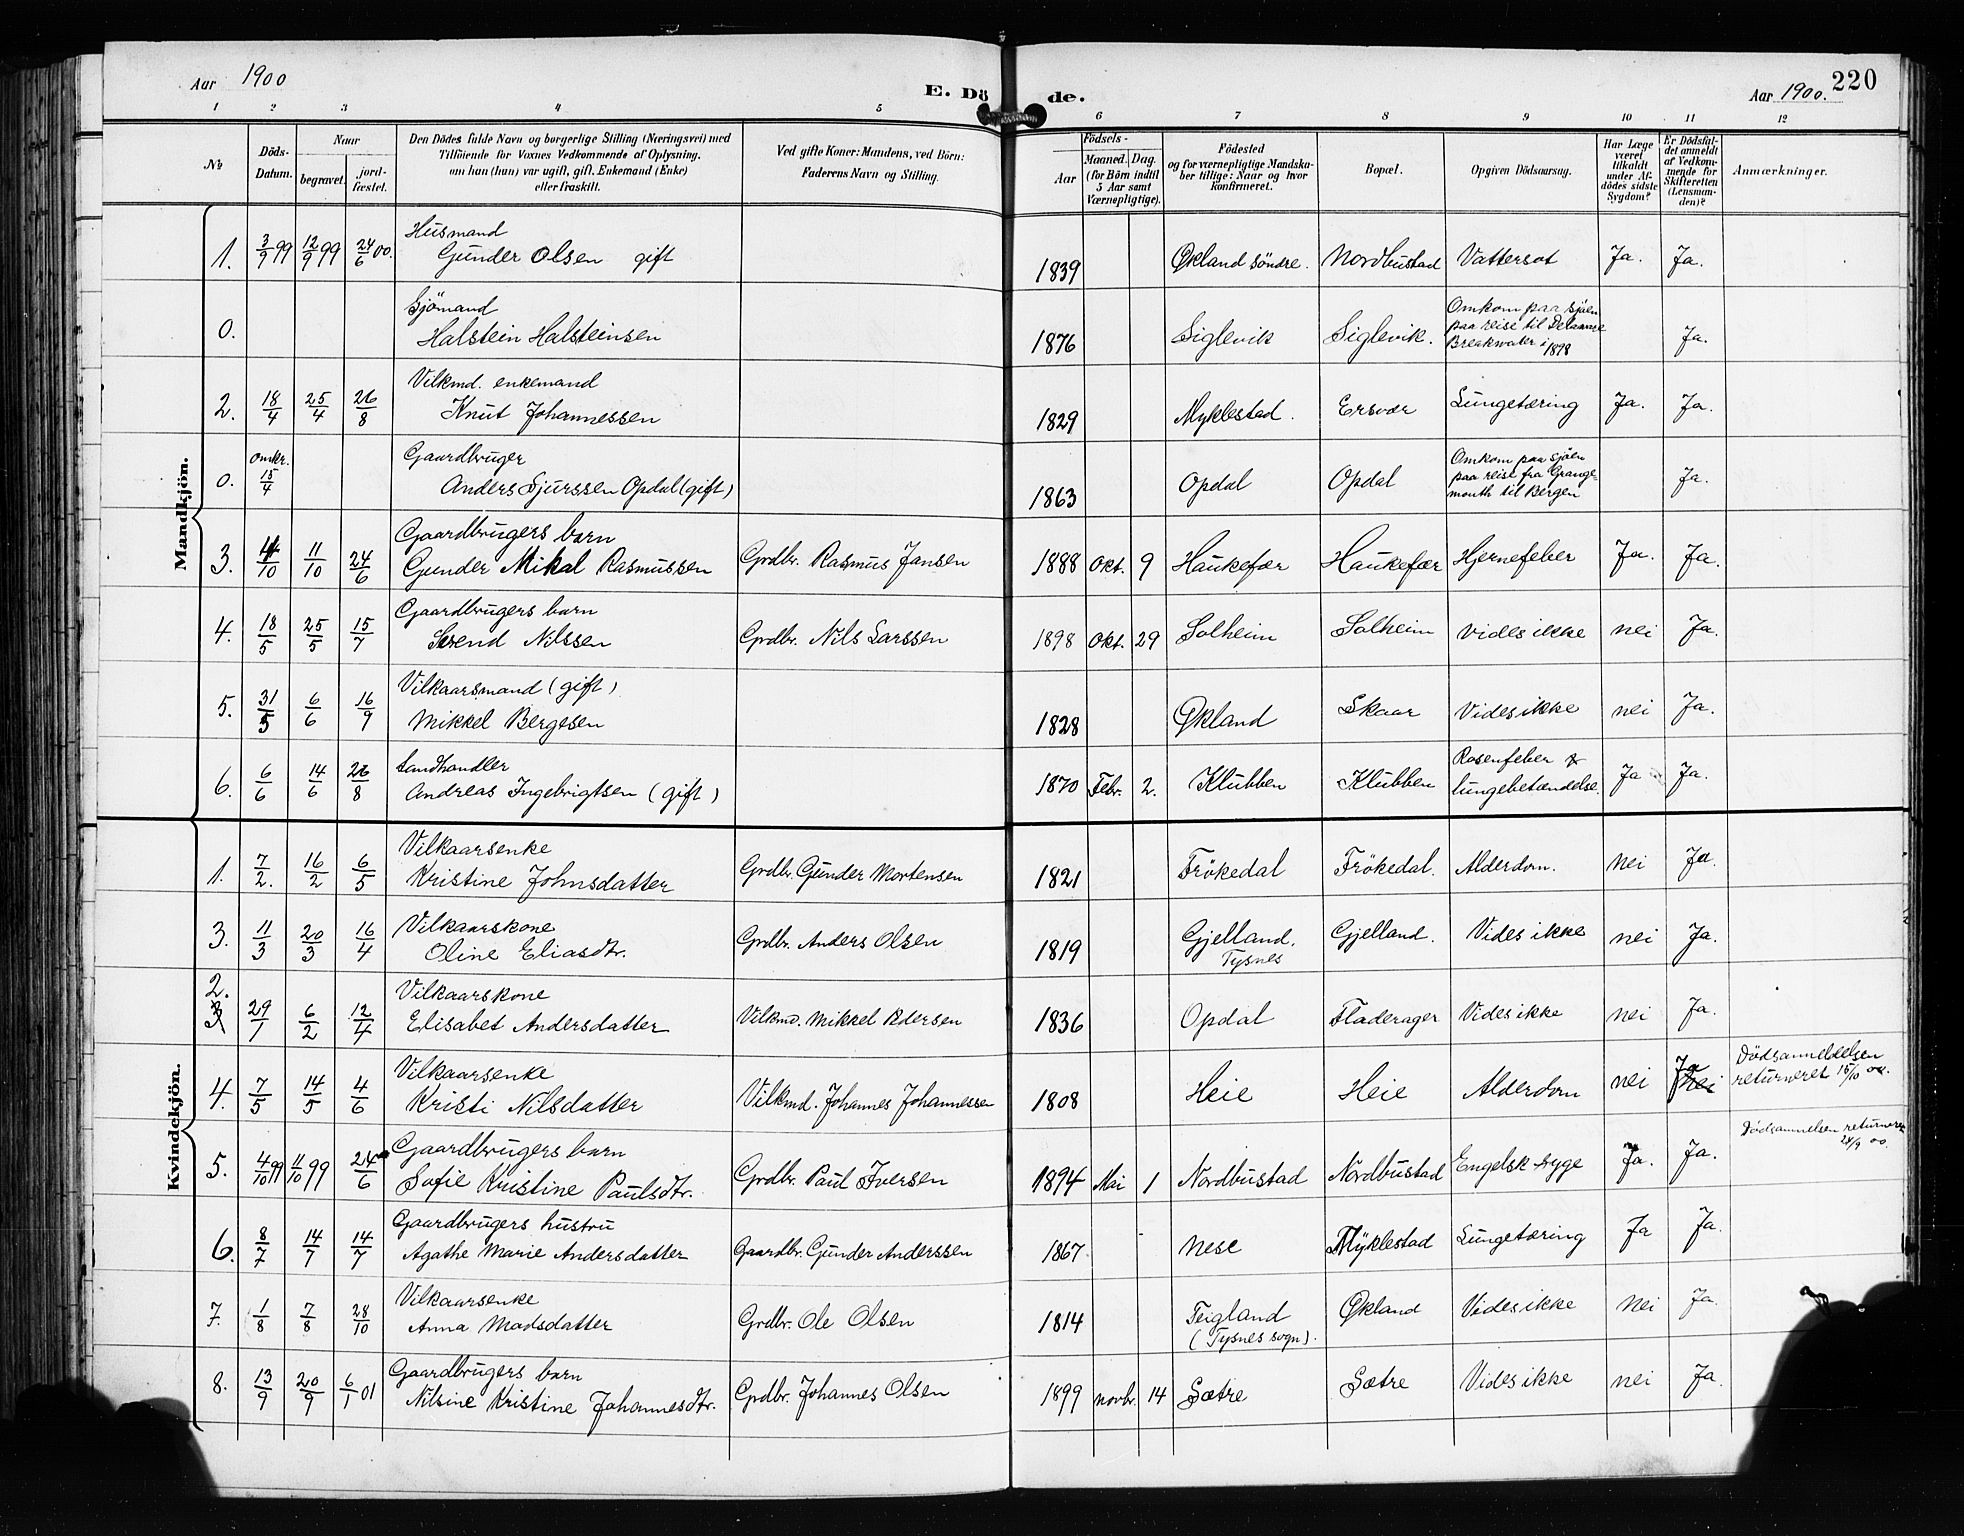 Aar 1900
E. Dö de.
Aar 1900.
220
1 2 3 4 5 6 7 8 9 10 11 12
No
Döds-Datum.
Naar
begravet.
jord-fæstet.
Den Dödes fulde Navn og borgerlige Stilling (Næringsvei) med
Tilföiende for Voxnes Vedkommende af Oplysning.
om han (hun) var ugift, gift, Enkemand (Enke)
eller fraskilt.
Ved gifte Koner: Mandens, ved Börn:
Faderens Navn og Stilling.
Födsels-
Aar
Maaned. Dag.
(for Börn indtil
5 Aar samt
Værnepligtige).
Födested
og for værnepligtige Mandska-
ber tillige: Naar og hvor
konfirmeret.
Bopæl.
Opgiven Dödsaarsag.
Har Læge
været
tilkaldt
under Af-
dödes sidste
Sygdom?
Er Dödsfal-
det anmeldt
af Vedkom-
mende for
Skifteretten
(Lensman-
den)?
Anmærkninger.
Mandkjön.
Husmand
1. 3/9 99 12/9 99 24/6 00. Gunder Olsen gift 1839 Økland söndre. Nordbustad Vattersot Ja. Ja.
Sjömand
0. Halstein Halsteinsen 1876 Siglevik Siglevik. Omkom paa sjöen
paa reise til Delaware
Breakwater i 1898 Ja.
Vilkmd. enkemand
2. 18/4 25/4 26/8 Knut Johannessen 1829 Myklestad. Ersvær Lungetæring Ja. Ja.
Gaardbruger
0. omkr. 15/4 Anders Sjurssen Opdal (gift) 1863 Opdal Opdal Omkom paa sjöen
paa reise fra Grange-
mouth til Bergen Ja.
Gaardbrugers barn
3. 4/10 11/10 24/6 Gunder Mikal Rasmussen Grdbr. Rasmus Jansen 1888 Okt. 9 Haukefær Haukefær Hjernefeber Ja. Ja.
Gaardbrugers barn
4. 18/5 25/5 15/7 Svend Nilssen Grdbr. Nils Larssen 1898 Okt. 29 Solheim Solheim vides ikke nei Ja.
Vilkaarsmand (gift)
5. 31/5 6/6 16/9 Mikkel Bergesen 1828 Økland Skaar Vides ikke nei Ja.
Landhandler
6. 6/6 14/6 26/8 Andreas Ingebrigtsen (gift) 1870 Febr. 2. Klubben Klubben Rosenfeber &
lungebetændelse. Ja Ja.
Kvindekjön.
Vilkaarsenke
1. 7/2. 16/2 6/5 Kristine Johnsdatter Grdbr. Gunder Mortensen 1821 Frökedal Frökedal. Alderdom. nei Ja.
Vilkaarskone
3. 11/3 20/3 16/4 Oline Eliasdtr. Grdbr. Anders Olsen 1819 Gjelland.
Tysnes Gjelland. Vides ikke nei Ja.
Vilkaarskone
2. 3 29/1 6/2 12/4 Elisabet Andersdatter Vilkmd. Mikkel Pedersen 1836 Opdal Fladerager Vides ikke nei Ja.
Vilkaarsenke
4. 7/5 14/5 4/6 Kristi Nilsdatter Vilkmd. Johannes Johannessen 1808 Heie Heie Alderdom nei Ja nei Dödsanmeldelsen
returneret 15/10 00.
Gaardbrugers barn
5. 4/10 99 11/10 99 24/6 Sofie Kristine Paulsdtr. Grdbr. Paul Iversen 1894 Mai 1 Nordbustad Nordbustad Engelsk syge Ja. Ja. Dödsanmelsen returneret
24/9 00.
Gaardbrugers hustru
6. 8/7 14/7 14/7 Agathe Marie Andersdatter Gaardbr. Gunder Anderssen 1867 Nese Myklestad Lungetæring Ja Ja.
Vilkaarsenke
7. 1/8 7/8 28/10 Anna Madsdatter Grdbr. Ole Olsen 1814 Teigland
(Tysnes sogn). Økland Vides ikke Nei Ja.
Gaardbrugers barn
8. 13/9 20/9 6/1 01 Nilsine Kristine Johannesdtr. Grdbr. Johannes Olsen 1899 novbr. 14 Sætre Sætre Vides ikke nei Ja.